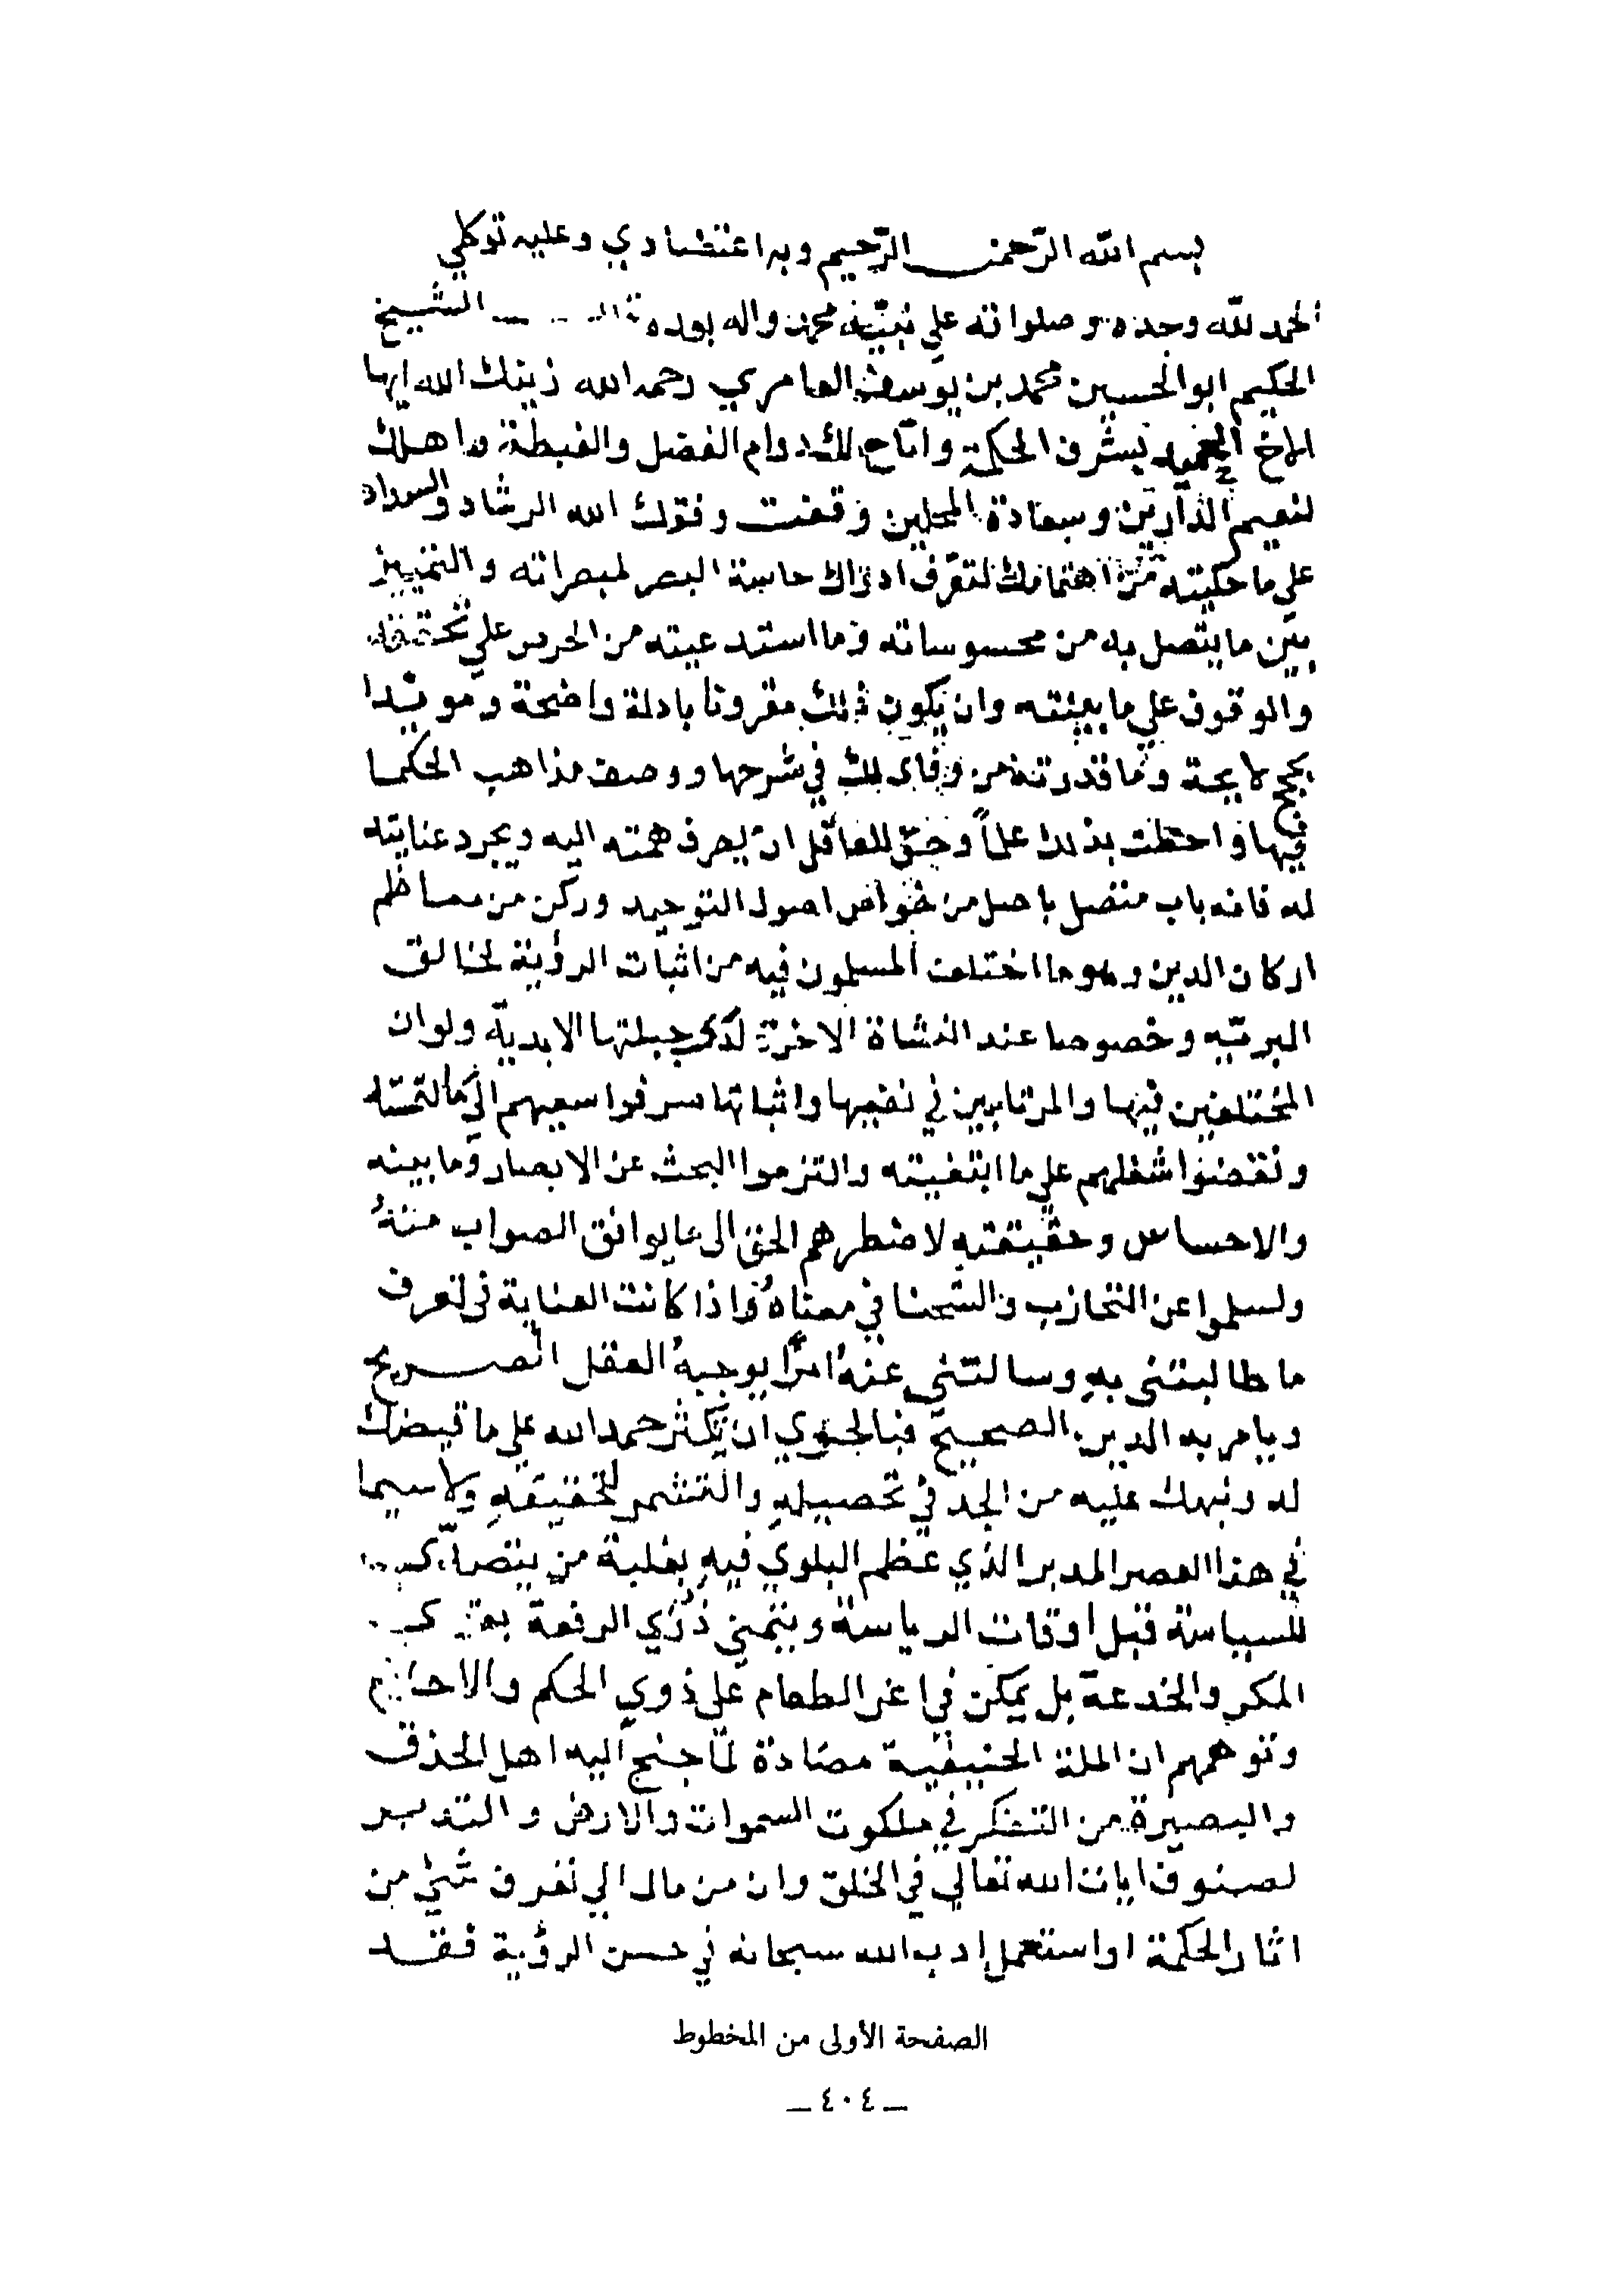 بسم الله الرّحمن الرّحيم وبه اعتضادي وعليه توكلي
الحمد لله وحده وصلواته على نبيّه محمد واله بعده قال الشيخ
الحكيم ابو الحسين محمد بن يوسف العامري رحمه الله زينك الله ايها
الاخ بشرف الحكمة واتاح لك دوام الفضل والغبطة واهلك
لنعيم الدارين وسعادة المحلين وقفت وفقك الله الرشاد والسداد
على ما حكيته من اهتمامك لتعرّف ادراك حاسة البصر لمبصراته والتمييز
بين ما يتصل به من محسوساته وما استدعيته من الحرص على
والوقوف على ما بينته وان يكون ذلك مقرونا بادلة واضحة ومويدا
بحجج لايحة وما قدرته من وفاى لك في شرحها ووصف مذاهب الحكما
فيها واحطت بذلك علماً وحقّ للعاقل ان يصرف همته اليه ويجرد عنايته
له فانه باب متصل باصل من غوامض اصول التوحيد وركن من معاظم
اركان الدين وهو ما اختلف المسلمون فيه من اثبات الرؤية لخالق
البريّه وخصوصا عند النشاة الاخرة لذى جبلتها الابديّة ولو ان
المختلفين فيها والمرتابين في نفيها واثباتها صرفوا سعيهم الى ما التمسته
ونقضوا شغلهم على ما ابتغيته والتزموا البحث عن الابصار وما بينه
والاحساس وحقيقته لاضطرهم الحق الى ما يوافق الصواب منهُ
ولسلموا عن التحازب والشحنا في معناهُ واذا كانت العناية في تعرف
ما طالبتني بهِ وسالتني عنهُ امرًا يوجبهُ العقل الصريح
ويامر به الدين الصحيح فبالحري ان تكثر حمد الله على ما قيضك
له ونبهك عليه من الجد في تحصيلهِ والتشمر لتحقيقهِ ولا سيما
في هذا العصر المدبر الذي عظم البلوي فيهِ بغلبة من
للسياسة قبل اوقات الرياسة ويتمنى ذُرَي الرفعة
المكر والخدعة بل يمكن في اغر الطغام على ذوي الحكم والاحلام
وتوهمهم ان الملة الحنيفية مضادة لما جنح اليه اهل الحذق
والبصيرة من التفكر في ملكوت السموات والارض والتدبر
لصنوف ايات الله تعالي في الخلق وان من مال الي تعرف شيْ من
اثار الحكمة او استعمل ادب الله سبحانه في حسن الرؤية فقد
الصفحة الأولى من المخطوط
ـ ٤٠٤ ـ